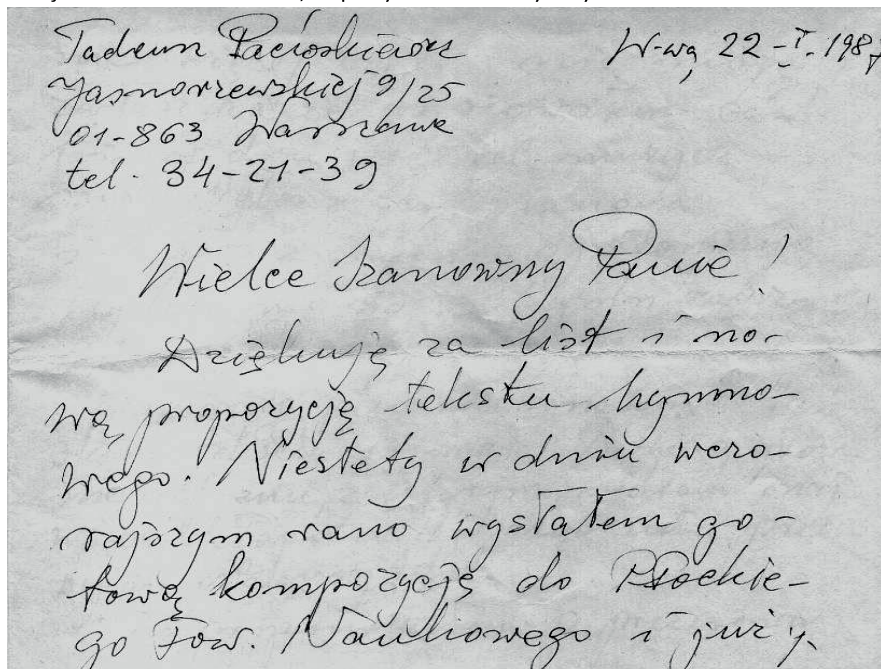 Tadeusz Paciorkiewicz
Jasnorzewskiej 9/25
01-863 Warszawa
tel. 34-21-39
W-wa, 22-I-1987
Wielce Szanowny Panie!
Dziękuję za list i no-
wą propozycję tekstu hymno-
wego. Niestety w dniu wczo-
rajszym rano wysłałem go-
tową kompozycję do Płockie-
go Tow. Naukowego i już